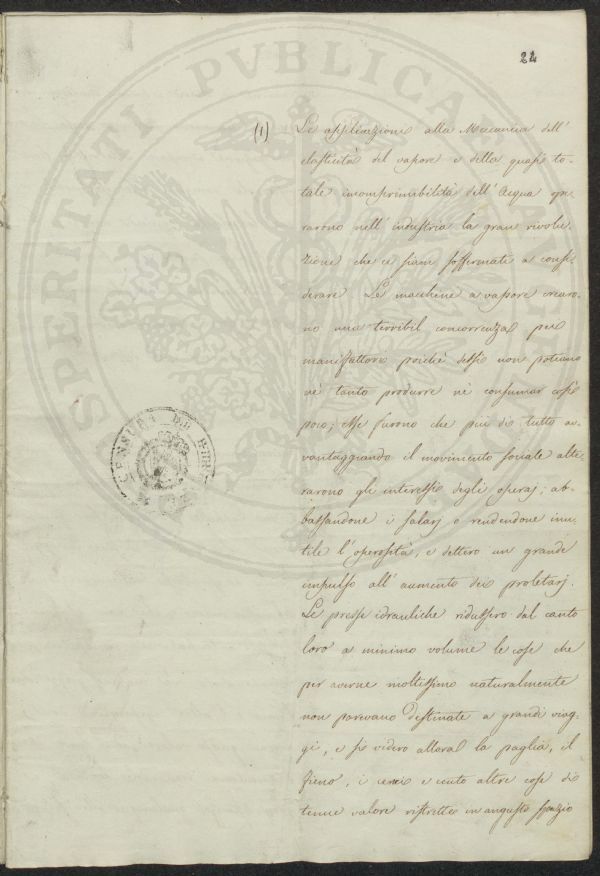 24
(1) Le applicazioni alla Meccanica dell'
elasticità del vapore e della quasi to-
tale incomprimibilità dell'Acqua ope
rarono nell'industria la gran rivolu-
zione che ci siam soffermati a consi-
derare. Le macchine a vapore crearo-
no una terribil concorrenza pei
manifattori poichè dessi non poteano
nè tanto produrre nè consumar così
poco; esse furono che più di tutto av-
vantaggiando il movimento sociale alte-
rarono gli interessi degli operaj, ab-
bassandone i salarj o rendendone inu-
tile l'operosità, e dettero un grande
impulso all'aumento dei proletarj.
Le presse idrauliche ridussero dal canto
loro a minimo volume le cose che
per averne moltissimo naturalmente
non parevano destinate a grandi viag-
gi, e si videro allora la paglia, il
fieno, i cenci e cento altre cose di
tenue valore ristrette in angusto spazio
CENSURA